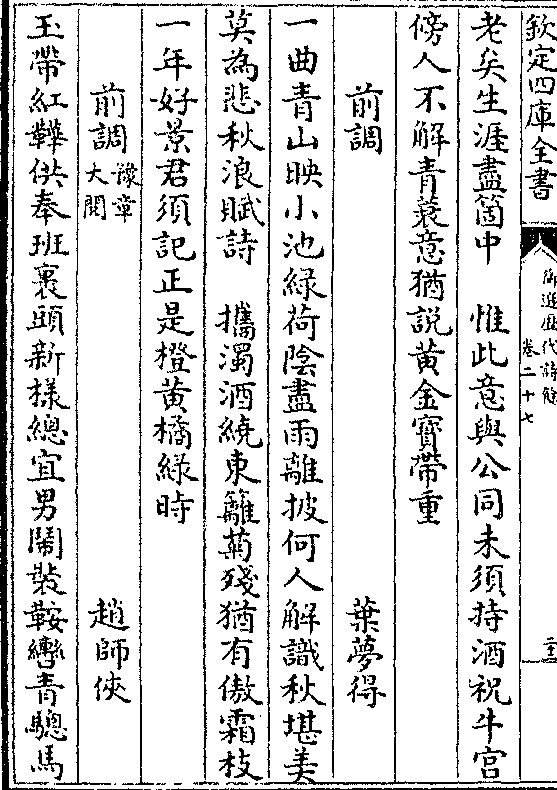 欽定四庫全書
御選歷代詩餘
卷二十七
老矣生涯盡箇中　惟此意與公同未須持酒祝牛宫
傍人不解青蓑意猶説黄金寳帶重
前調　葉夢得
一曲青山映小池綠荷陰盡雨離披何人解識秋堪美
莫為悲秋浪賦詩　攜濁酒繞東籬菊殘猶有傲霜枝
一年好景君須記正是橙黄橘緑時
前調豫章大閱　趙師俠
玉帶紅鞾供奉班裹頭新樣總宜男鬧裝鞍轡青驄馬